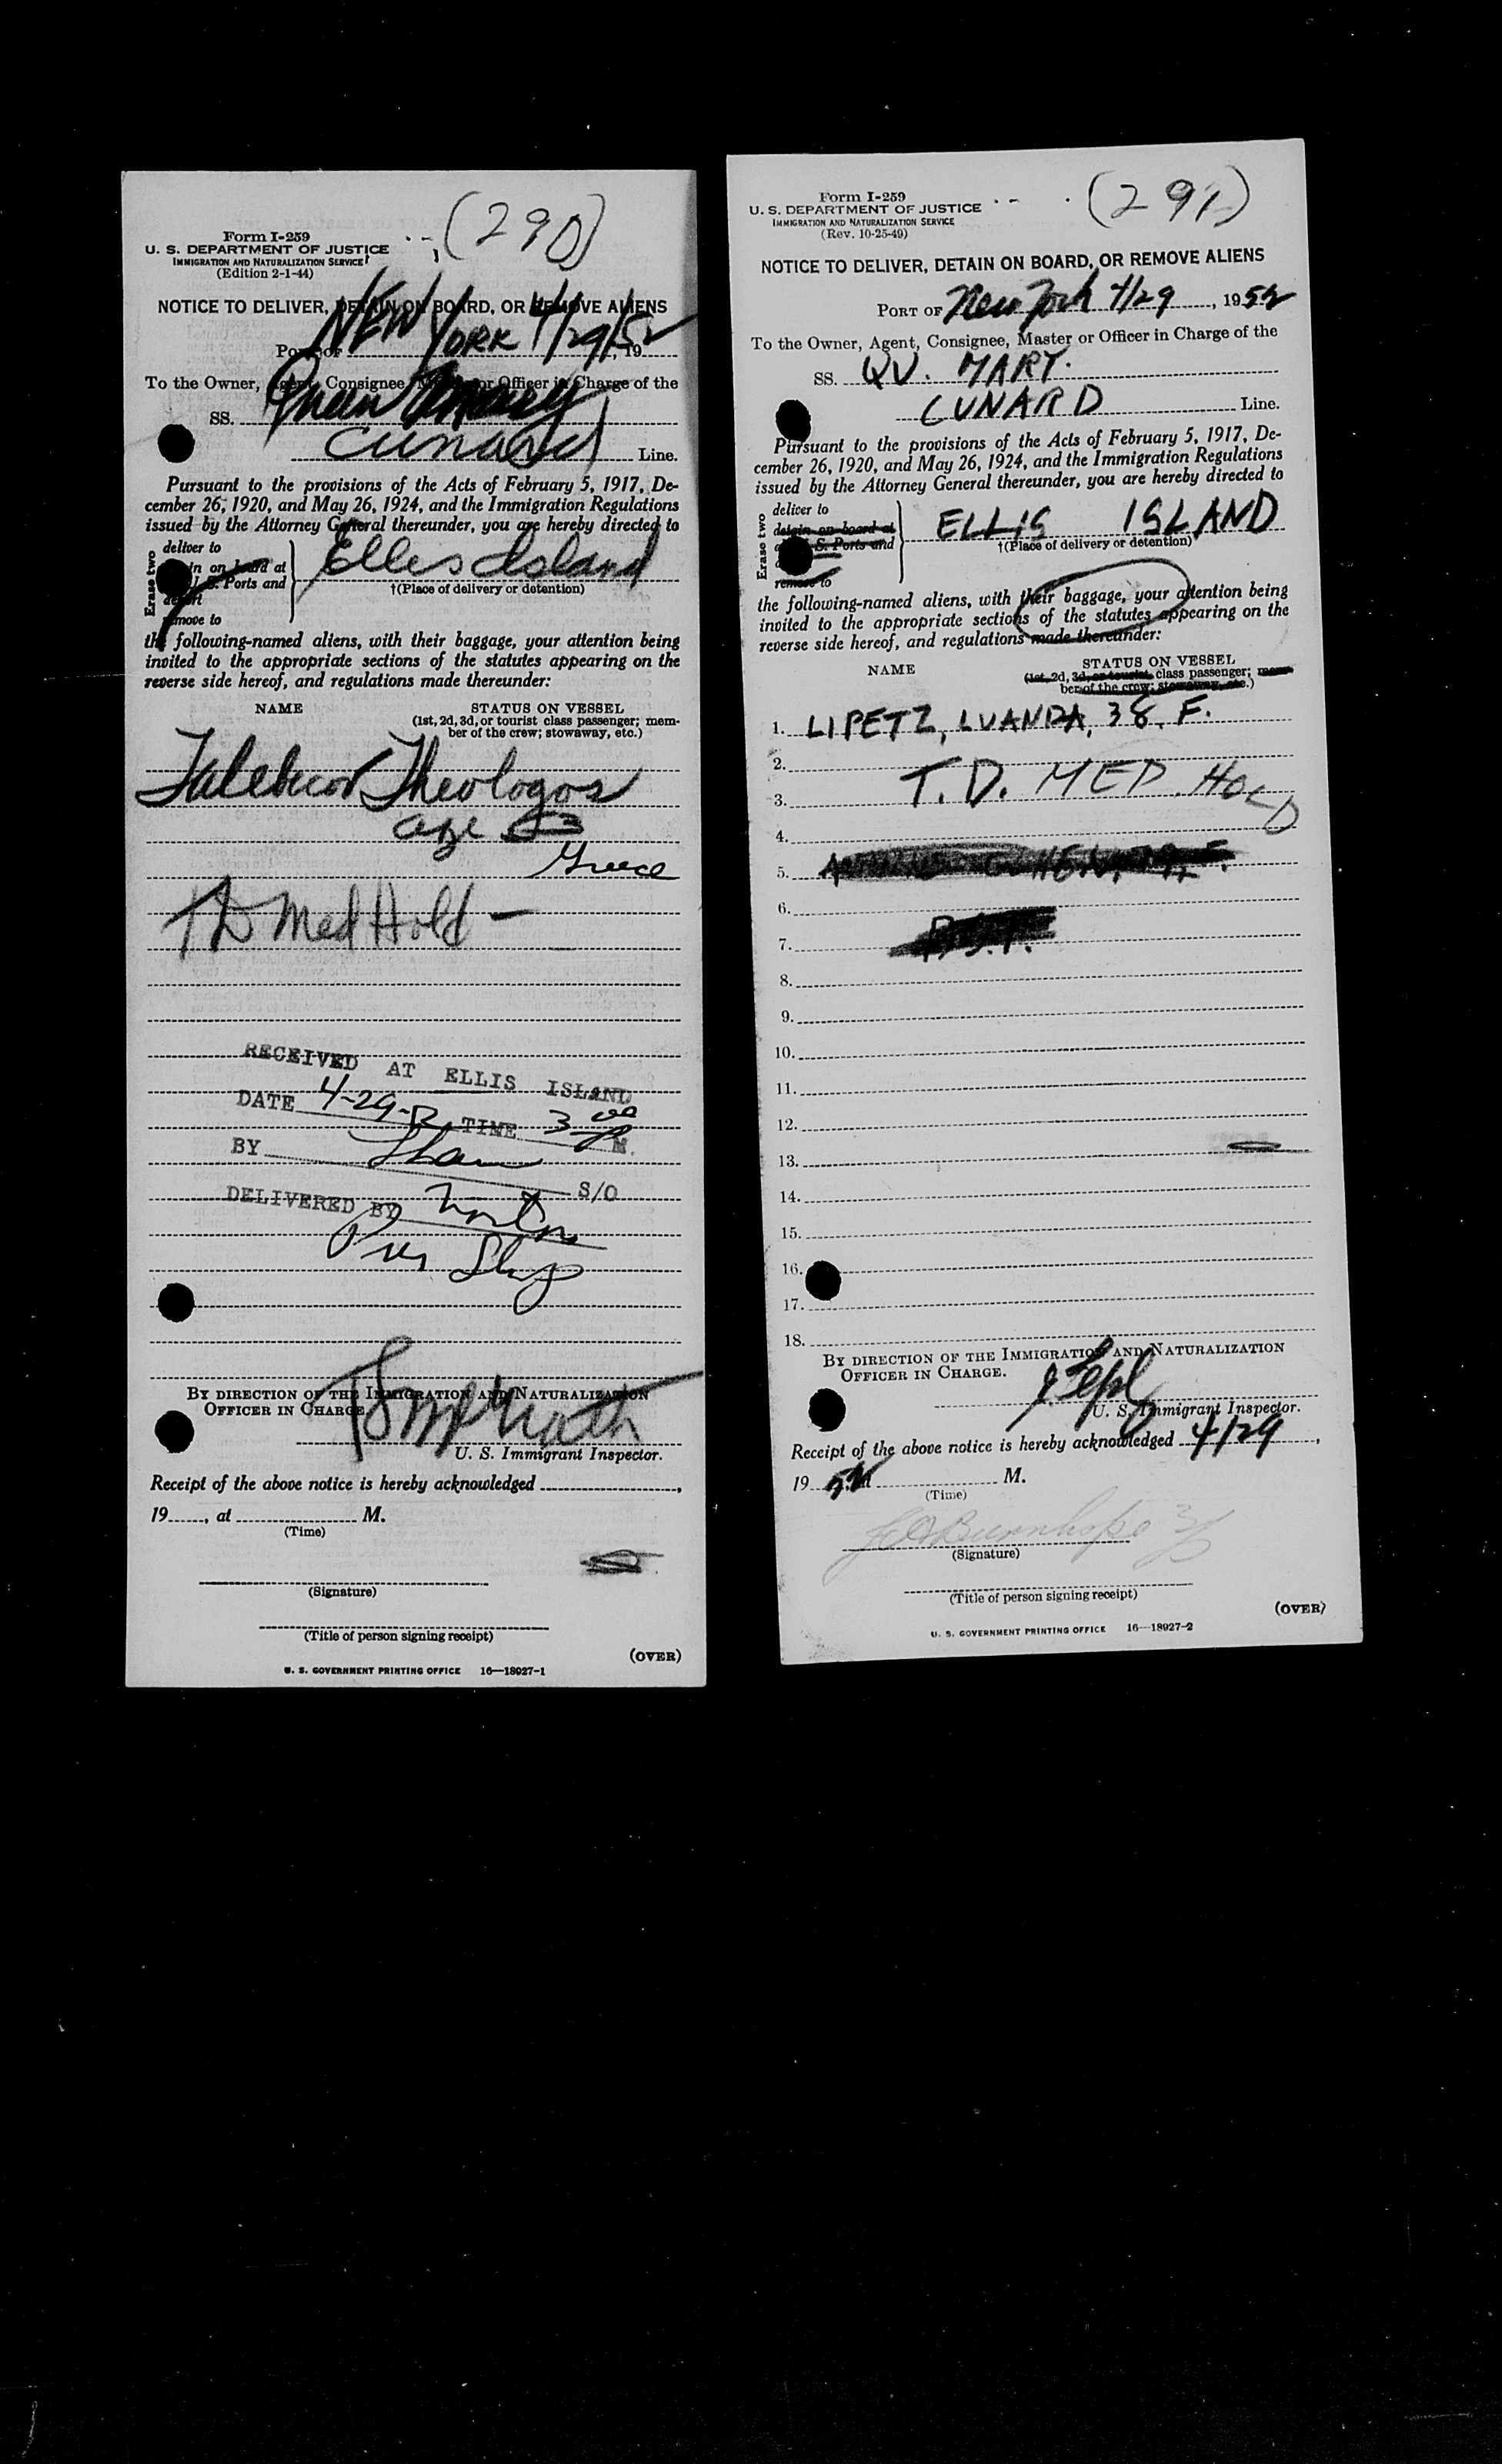 (290)
Form I-259
U. S. DEPARTMENT OF JUSTICE
IMMIGRATION AND NATURALIZATION SERVICE
(Edition 2-1-44)
NOTICE TO DELIVER, DETAIN ON BOARD, OR REMOVE ALIENS
Port of NEW YORK 4/29/52, 19
To the Owner, Agent, Consignee, Master or Officer in Charge of the
SS. Queen Mary
Cunard Line.
Pursuant to the provisions of the Acts of February 5, 1917, De-
cember 26, 1920, and May 26, 1924, and the Immigration Regulations
issued by the Attorney General thereunder, you are hereby directed to
Erase two
deliver to
in on board at
U. S. Ports and
remove to
Ellis Island
†(Place of delivery or detention)
the following-named aliens, with their baggage, your attention being
invited to the appropriate sections of the statutes appearing on the
reverse side hereof, and regulations made thereunder:
NAME STATUS ON VESSEL
(1st, 2d, 3d, or tourist class passenger; mem-
ber of the crew; stowaway, etc.)
Theologos
age 53
Greece
TD Med Hold —
RECEIVED AT ELLIS ISLAND
DATE 4-29-52 TIME 3 00 P M.
BY S/O
DELIVERED BY
BY DIRECTION OF THE IMMIGRATION AND NATURALIZATION
OFFICER IN CHARGE
U. S. Immigrant Inspector.
Receipt of the above notice is hereby acknowledged
19......, at M.
(Time)
(Signature)
(Title of person signing receipt)
(OVER)
U. S. GOVERNMENT PRINTING OFFICE 16—18927-1
(291)
Form I-259
U. S. DEPARTMENT OF JUSTICE
IMMIGRATION AND NATURALIZATION SERVICE
(Rev. 10-25-49)
NOTICE TO DELIVER, DETAIN ON BOARD, OR REMOVE ALIENS
PORT OF New York 4/29, 1952
To the Owner, Agent, Consignee, Master or Officer in Charge of the
SS. QU. MARY.
CUNARD Line.
Pursuant to the provisions of the Acts of February 5, 1917, De-
cember 26, 1920, and May 26, 1924, and the Immigration Regulations
issued by the Attorney General thereunder, you are hereby directed to
Erase two
deliver to
detain on board at
S. Ports and
remove to
ELLIS ISLAND
†(Place of delivery or detention)
the following-named aliens, with their baggage, your attention being
invited to the appropriate sections of the statutes appearing on the
reverse side hereof, and regulations made thereunder:
NAME STATUS ON VESSEL
(1st, 2d, 3d, or tourist class passenger; mem-
ber of the crew; stowaway, etc.)
1. LIPETZ, LUANDA, 38, F.
2.
3. T.D. MED. HOLD
4.
5.
6.
7.
8.
9.
10.
11.
12.
13.
14.
15.
16.
17.
18.
BY DIRECTION OF THE IMMIGRATION AND NATURALIZATION
OFFICER IN CHARGE.
U. S. Immigrant Inspector.
Receipt of the above notice is hereby acknowledged 4/29,
19 52 M.
(Time)
(Signature)
(Title of person signing receipt)
(OVER)
U. S. GOVERNMENT PRINTING OFFICE 16—18927-2